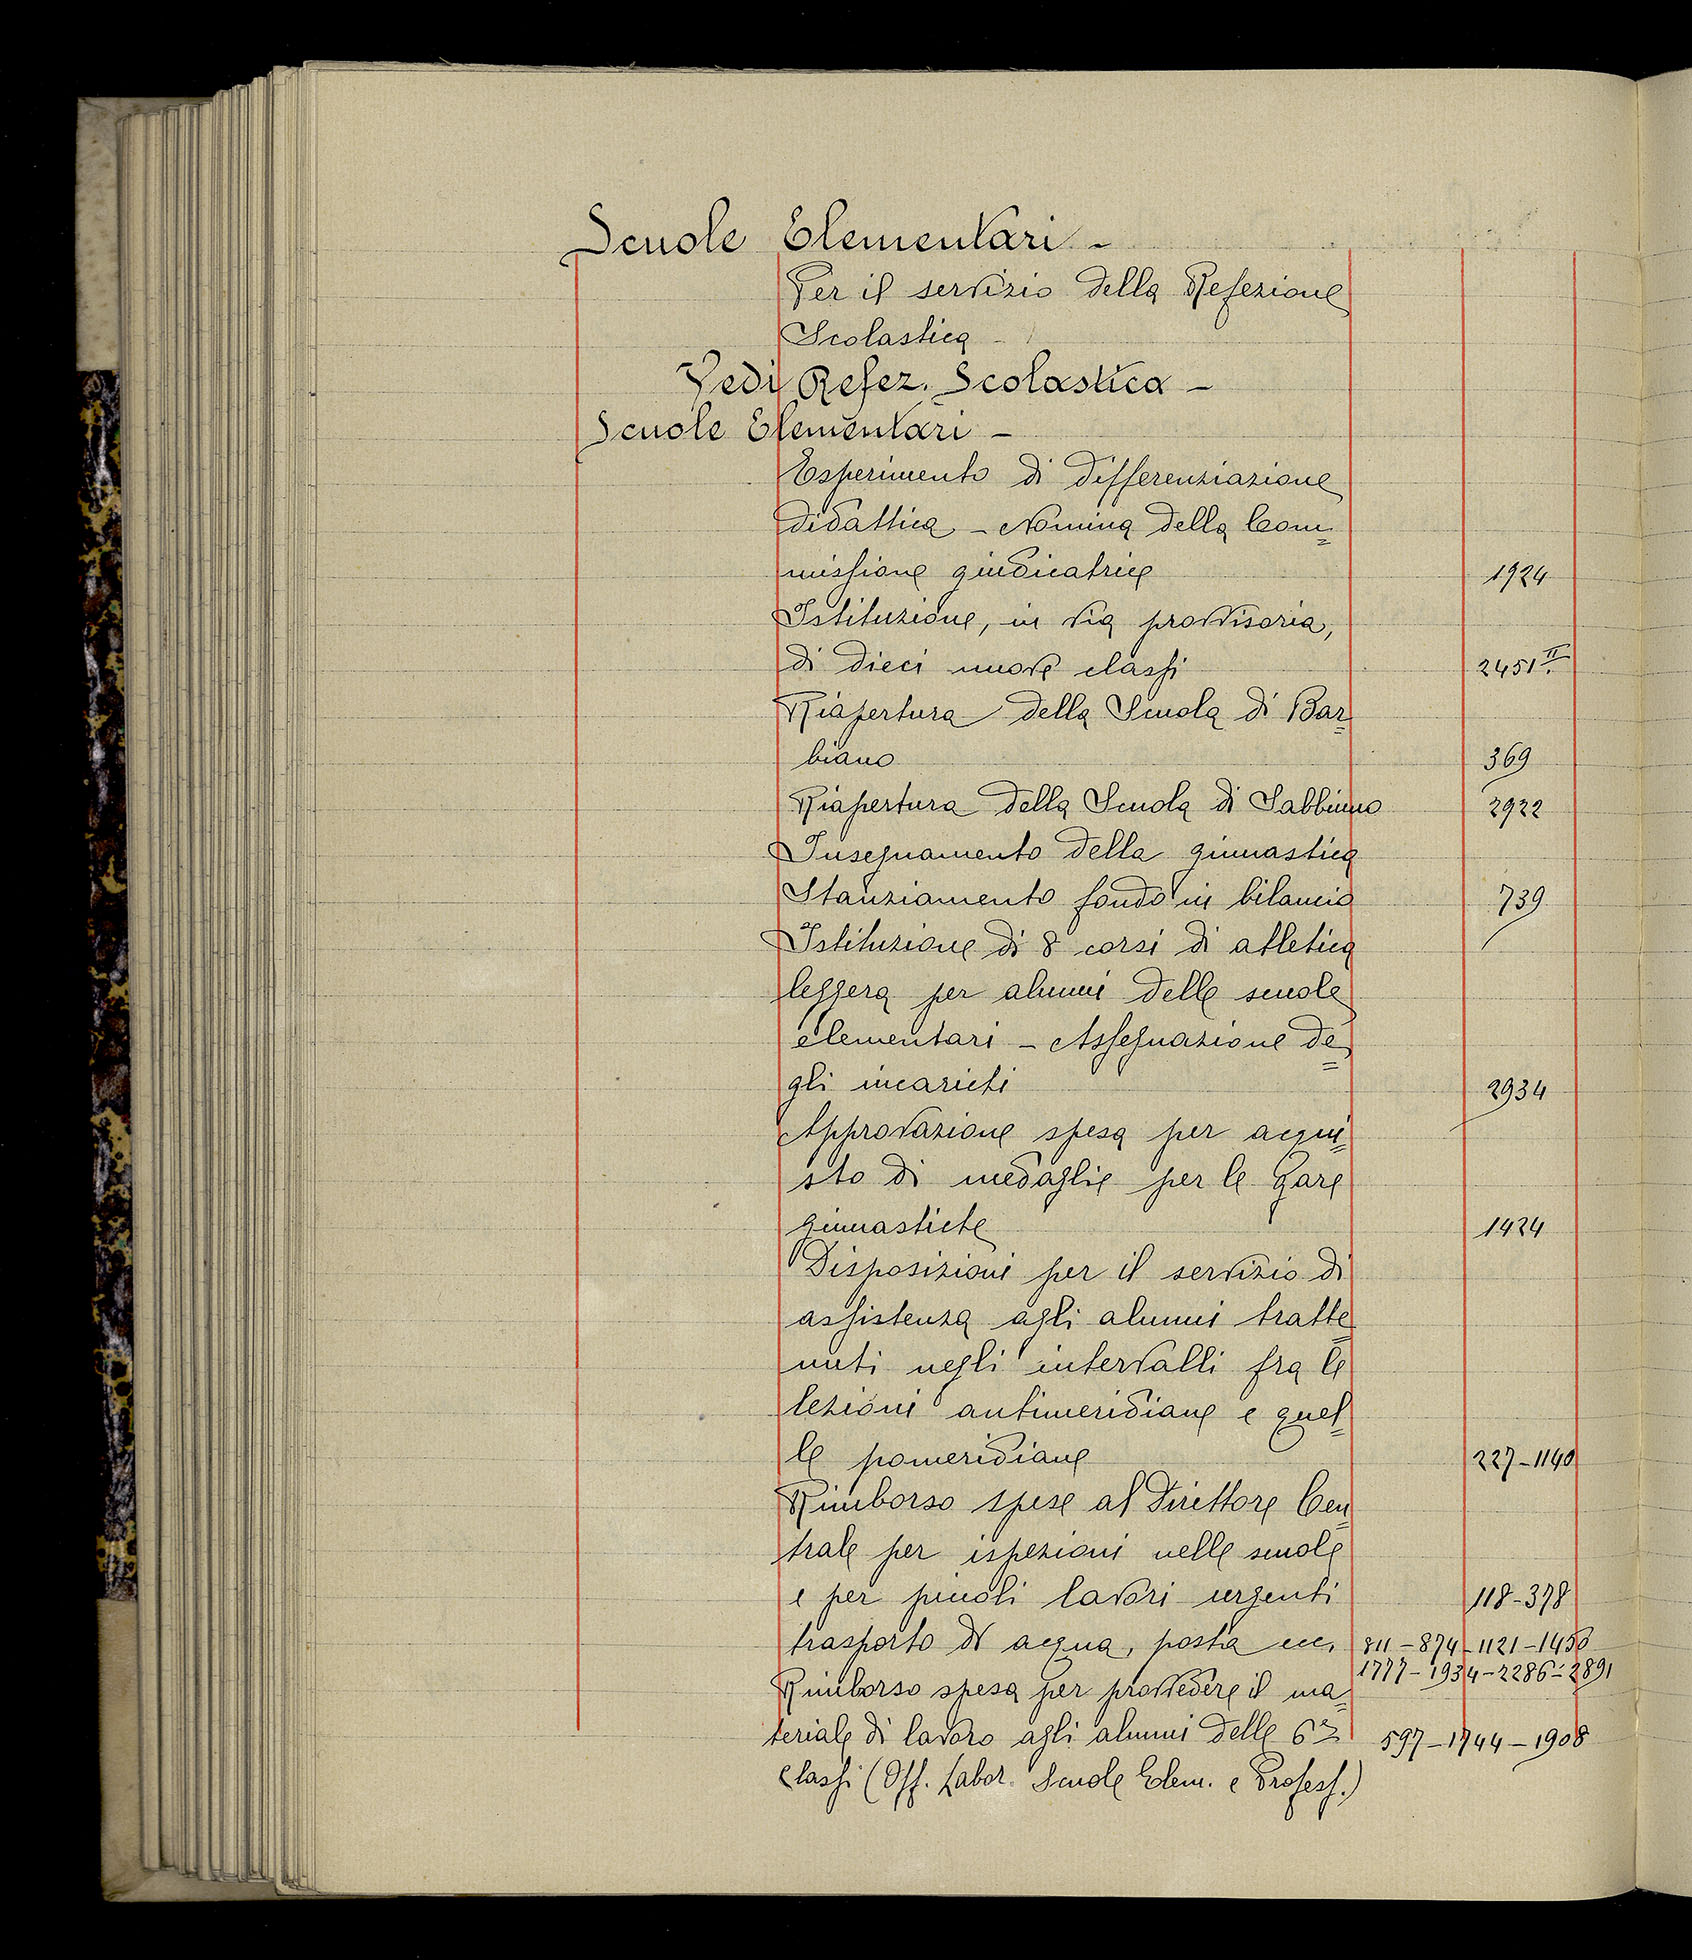 Scuole Elementari -
Per il servizio della Refezione
Scolastica -
Vedi Refez. Scolastica -
Scuole Elementari -
Esperimento di differenziazione
didattica - Nomina della Com=
missione giudicatrice 1924
Istituzione, in via provvisoria,
di dieci nuove classi 2451 II.
Riapertura della Scuola di Bar=
biano 369
Riapertura della Scuola di Sabbiuno 2922
Insegnamento della ginnastica
Stanziamento fondo in bilancio 739
Istituzione di 8 corsi di atletica
leggera per alunni delle scuole
elementari - Assegnazione de=
gli incarichi 2934
Approvazione spesa per acqui=
sto di medaglie per le gare
ginnastiche 1424
Disposizioni per il servizio di
assistenza agli alunni tratte=
nuti negli intervalli fra le
lezioni antimeridiane e quel=
le pomeridiane 227-1140
Rimborso spese al Direttore Cen=
trale per ispezioni nelle scuole
e per piccoli lavori urgenti 118-378
trasporto di acqua, posta ecc. 811-874-1121-1450
1777-1934-2286-2891
Rimborso spesa per provvedere il ma=
teriale di lavoro agli alunni delle 6e 597-1744-1908
classi (Off. Labor. Scuole Elem. e Profess.)